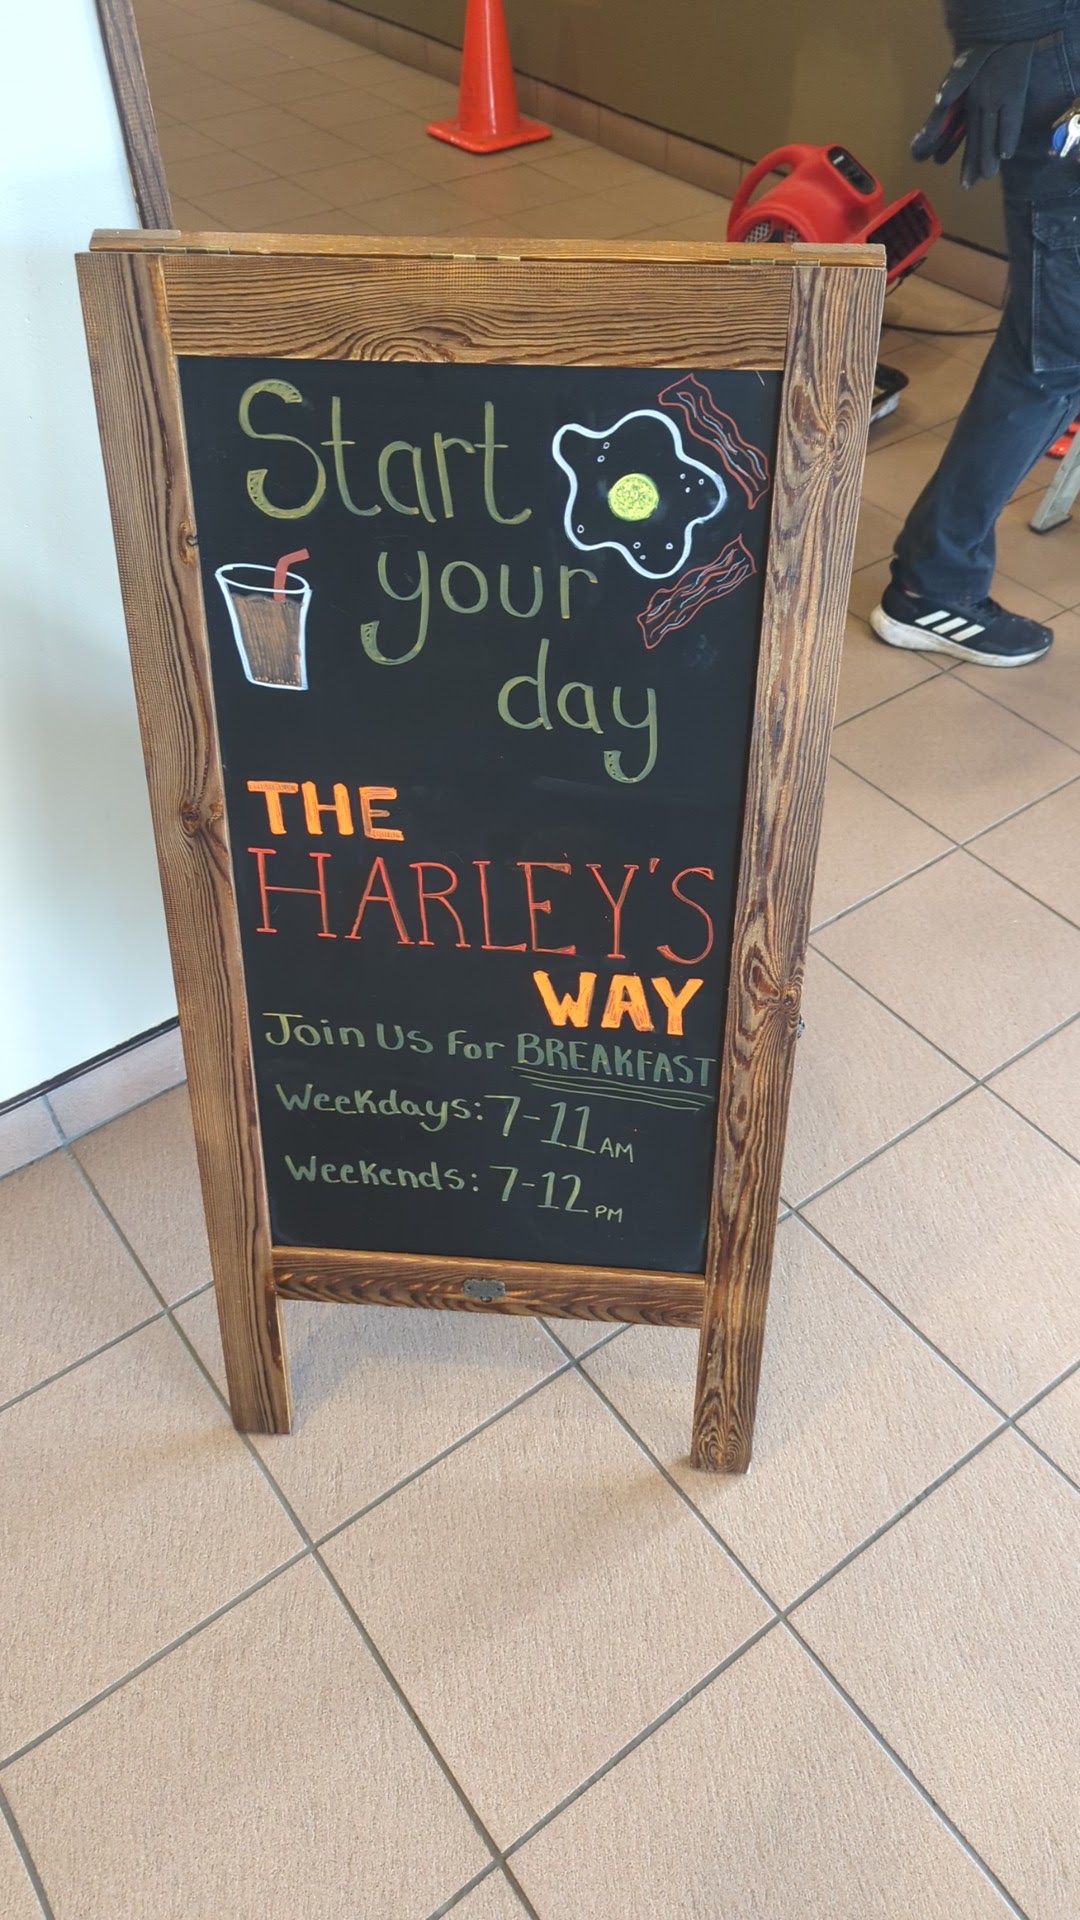 Start
your
day
THE
HARLEY'S
WAY
Join Us For BREAKFAST
Weekdays: 7-11 AM
Weekends: 7-12 PM